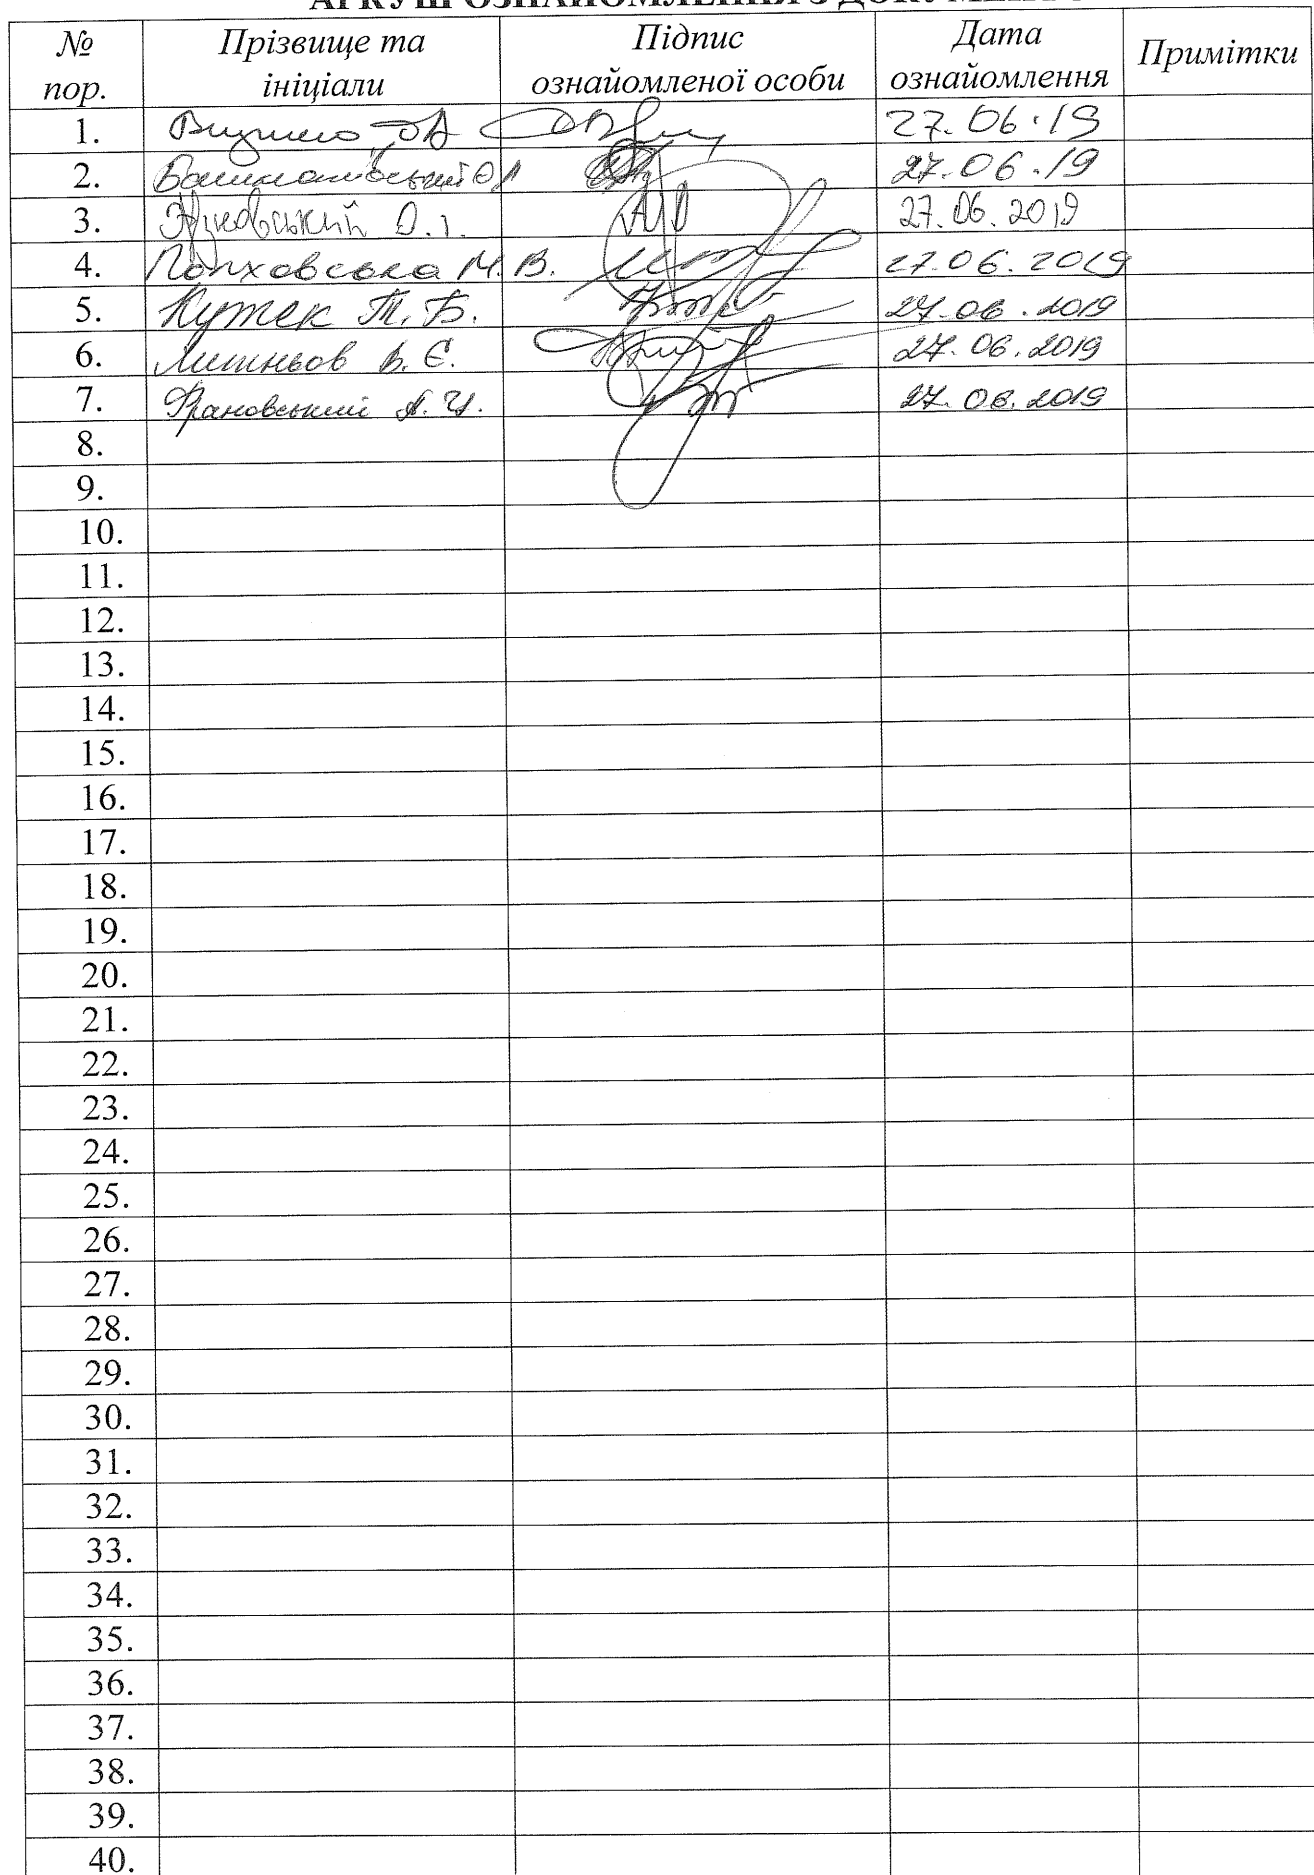 АРКУШ ОЗНАЙОМЛЕННЯ З ДОКУМЕНТОМ
№ пор. Прізвище та ініціали Підпис ознайомленої особи Дата ознайомлення Примітки
1. 27.06.19
2. 27.06.19
3. 27.06.2019
4. М.В. 27.06.2019
5. Кутек Т.Б. 27.06.2019
6. В.Є. 27.06.2019
7. Франовський А.Ц. 27.06.2019
8.
9.
10.
11.
12.
13.
14.
15.
16.
17.
18.
19.
20.
21.
22.
23.
24.
25.
26.
27.
28.
29.
30.
31.
32.
33.
34.
35.
36.
37.
38.
39.
40.